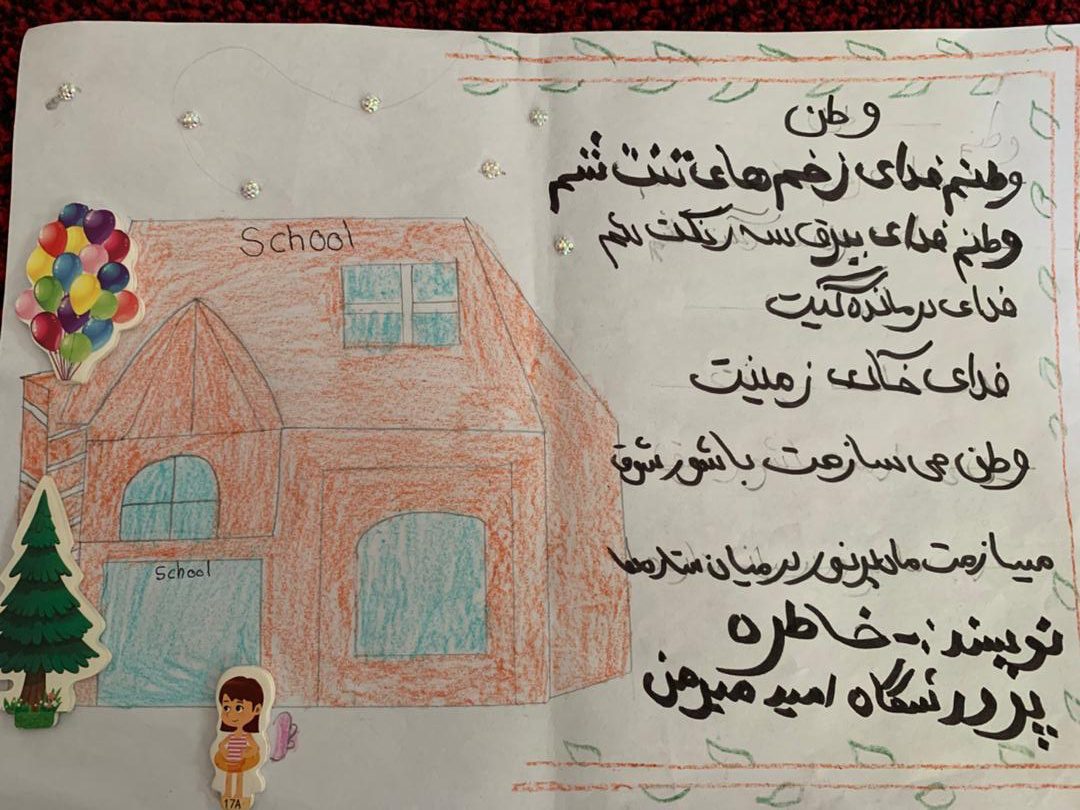 School
School
17A
وطن
وطنم فدای زخم های تنت شم
وطنم فدای بیرق سه رنگت شم
فدای درمانده گیت
فدای خاک زمینت
وطن می سازمت با شور شوق
میسازمت ماه پرنور در میان ستاره ها
نویسنده:- خاطره
پرورشگاه امید میهن